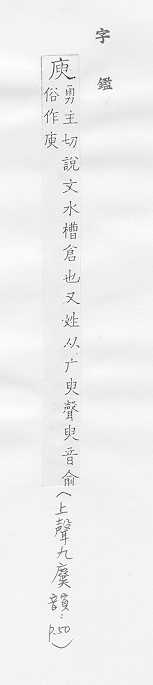 字鑑
庾勇主切說文水槽倉也又姓从广臾聲臾音俞
俗作庾
(上聲九麌韻:p.50)